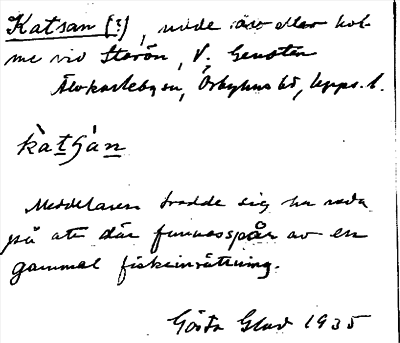 Katsan (?), udde av eller hol-
me vid Storön, V. Gensten
Älvkarleby sn, Örbyhus hd, Upps. l.
kàtsàn
Meddelaren trodde sig ha reda
på att där funnos spår av en
gammal fiskeinrättning.
Gösta Glad 1935